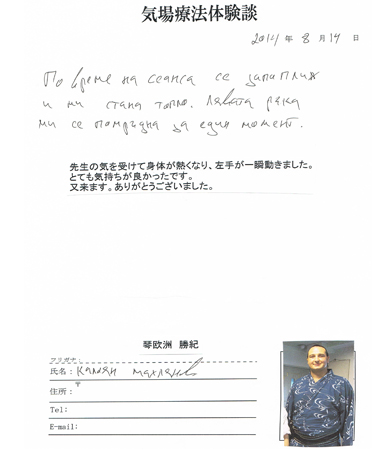 気場療法体験談
2014 年 8 月 19 日
По време на сеанса се запалих
и ми стана топло. Лявата ръка
ми се помръдна за един момент.
先生の気を受けて身体が熱くなり、左手が一瞬動きました。
とても気持ちが良かったです。
又来ます。ありがとうございました。
琴欧洲 勝紀
フリガナ:
氏名: Калоян
住所: 〒
Tel:
E-mail: